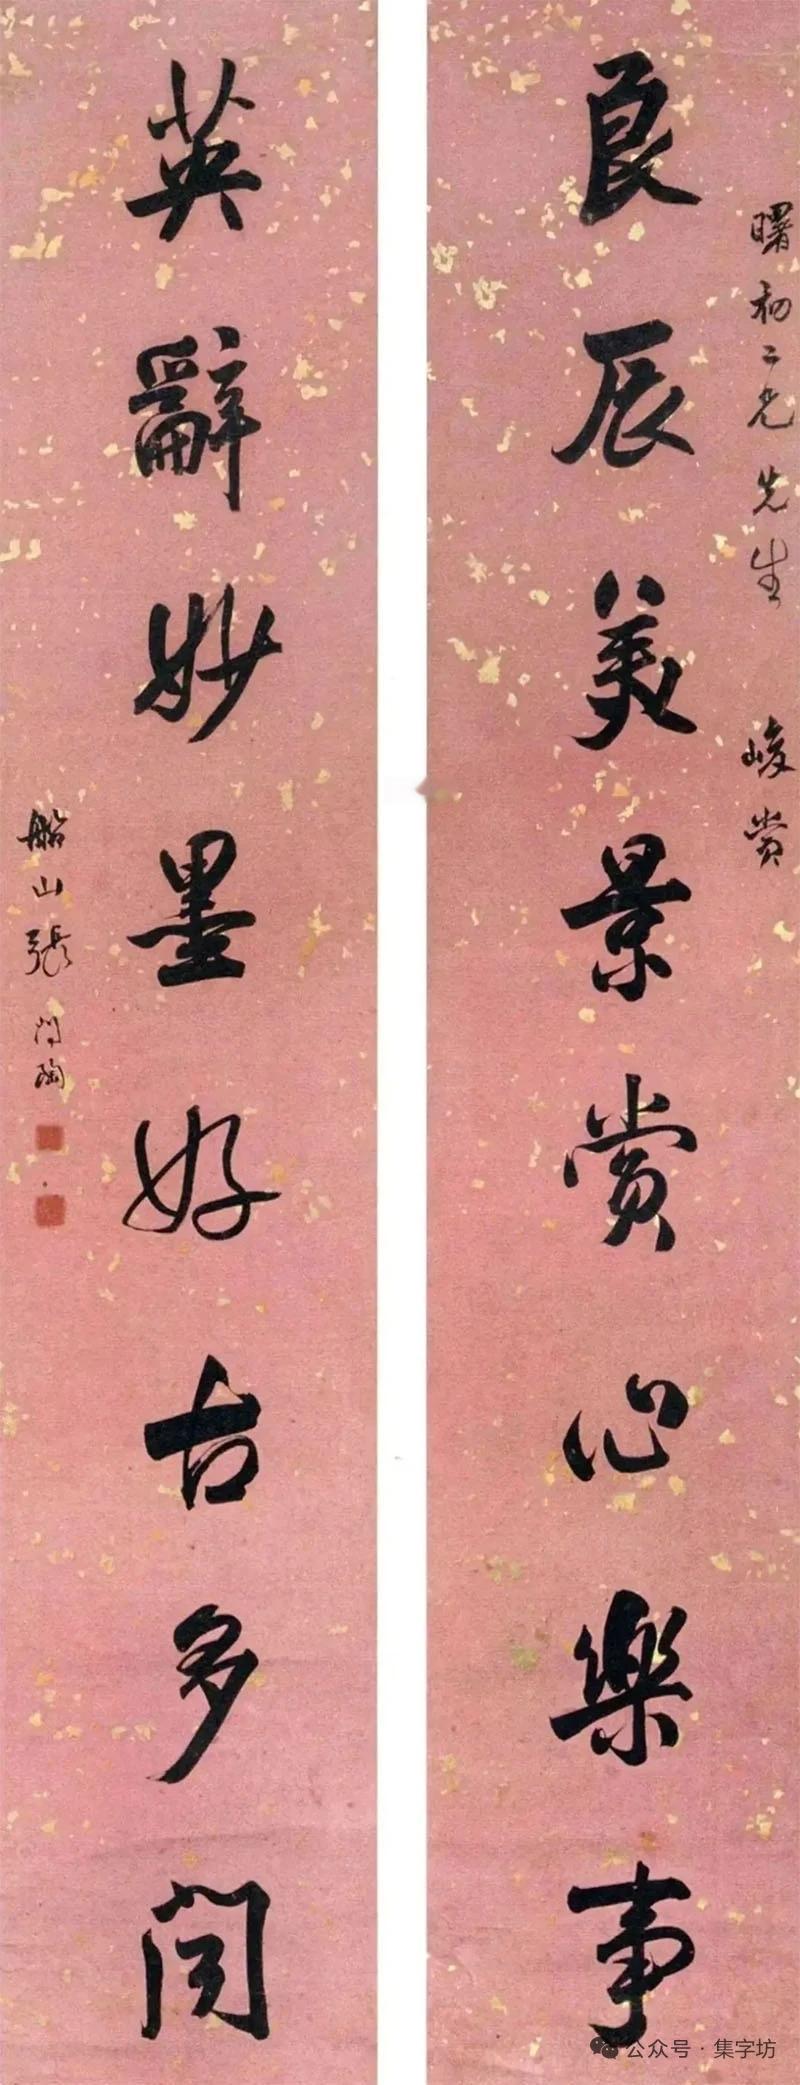 曙初二兄先生 峻赏
良辰美景赏心樂事
英辭妙墨好古多闻
船山張问陶
公众号·集字坊